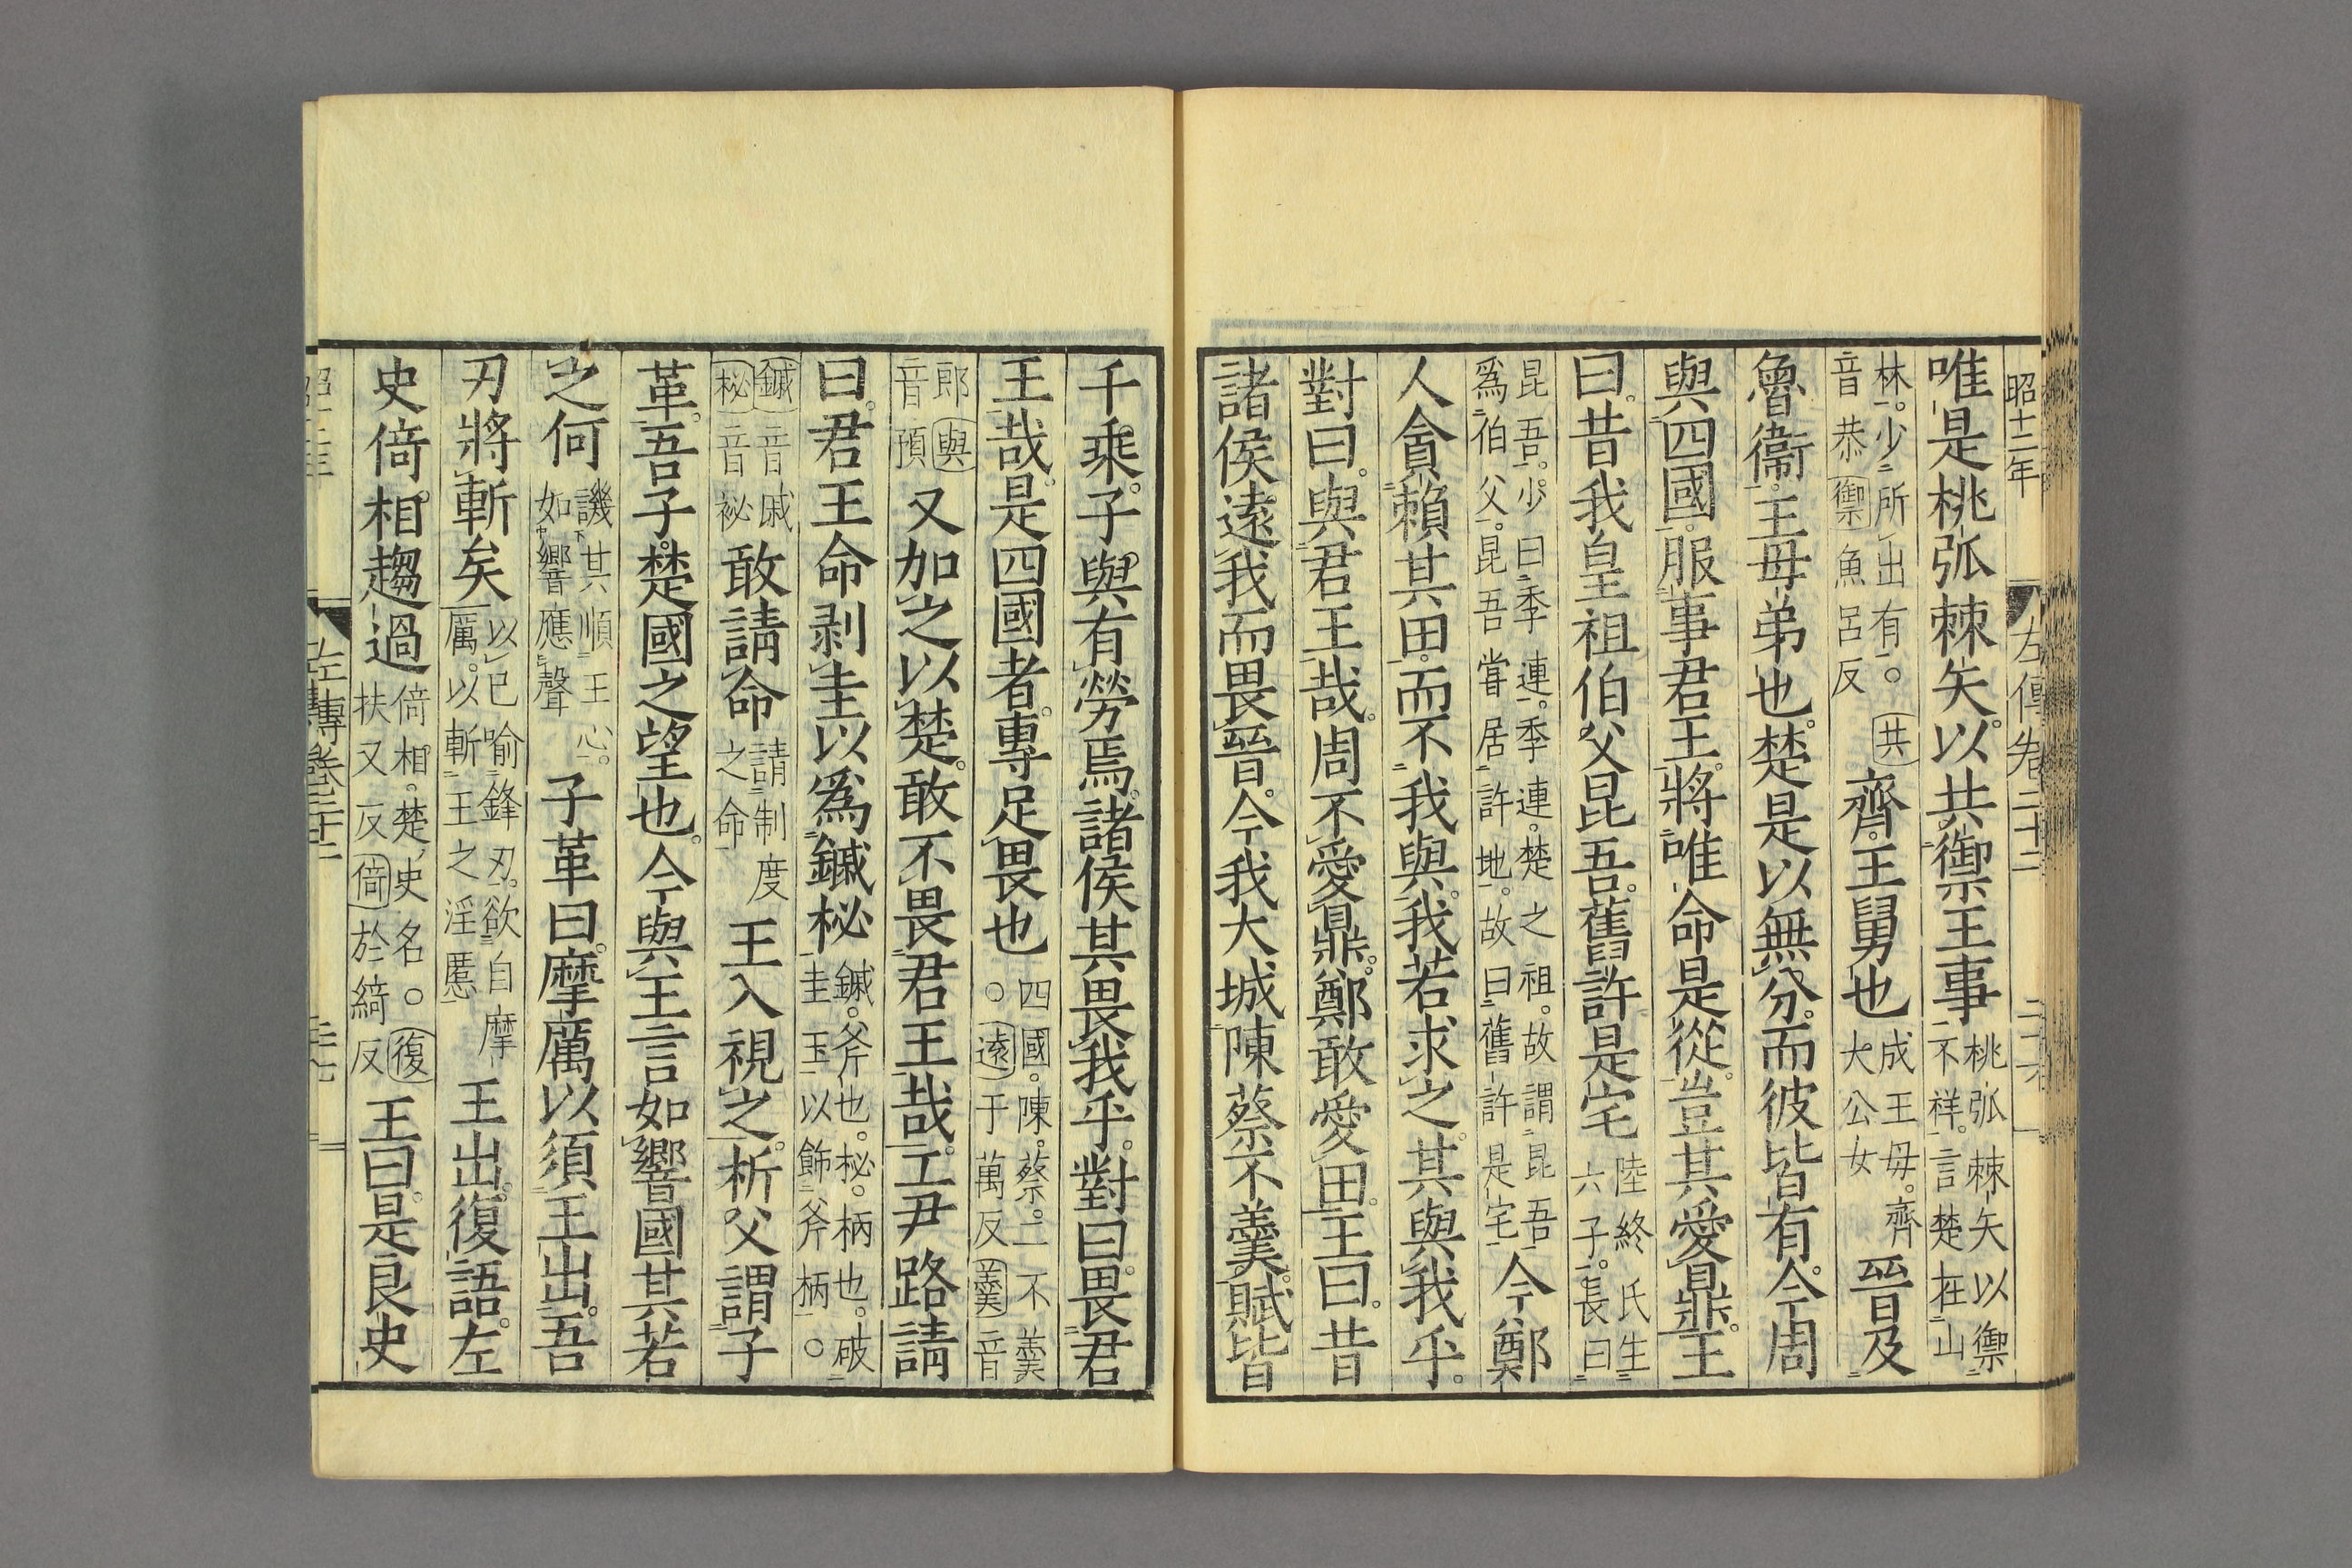 昭十二年
左傳卷二十二
唯是桃弧棘矢以共禦王事 桃弧棘矢以禦不祥言楚在山
林少所出有○共音恭禦魚呂反 齊王舅也 成王母齊大公女 晉及
魯衞王母弟也楚是以無分而彼皆有今周
與四國服事君王將唯命是從豈其愛鼎王
曰昔我皇祖伯父昆吾舊許是宅 陸終氏生六子長曰
昆吾少曰季連季連楚之祖故謂昆吾爲伯父昆吾嘗居許地故曰舊許是宅 今鄭
人貪賴其田而不我與我若求之其與我乎
對曰與君王哉周不愛鼎鄭敢愛田王曰昔
諸侯遠我而畏晉今我大城陳蔡不羹賦皆
千乘子與有勞焉諸侯其畏我乎對曰畏君
王哉是四國者專足畏也 四國陳蔡二不羹○遠于萬反羹音
郎與音預 又加之以楚敢不畏君王哉工尹路請
曰君王命剥圭以爲鏚柲 鏚斧也柲柄也破圭玉以飾斧柄○
鏚音戚柲音祕 敢請命 請制度之命 王入視之析父謂子
革吾子楚國之望也今與王言如響國其若
之何 譏其順王心如響應聲 子革曰摩厲以須王出吾
刃將斬矣 以已喻鋒刃欲自摩厲以斬王之淫慝 王出復語左
史倚相趨過 倚相楚史名○復扶又反倚於綺反 王曰是良史
左傳卷二十二